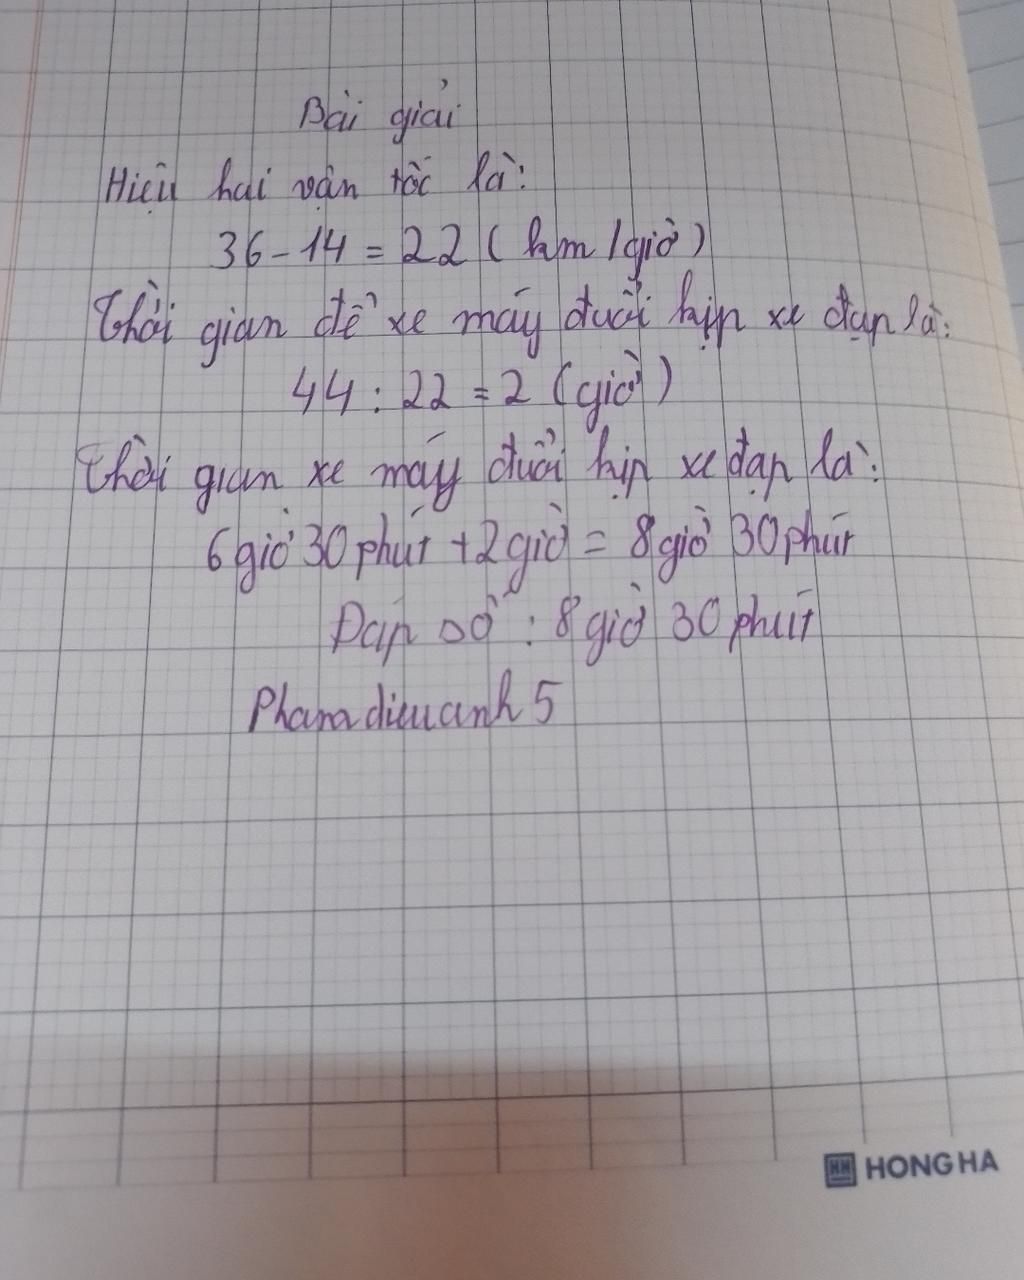 Bài giải
Hiệu hai vận tốc là:
36 - 14 = 22 (km/giờ)
Thời gian để xe máy đuổi kịp xe đạp là:
44 : 22 = 2 (giờ)
Thời gian xe máy đuổi kịp xe đạp là:
6 giờ 30 phút + 2 giờ = 8 giờ 30 phút
Đáp số : 8 giờ 30 phút
Phamdieuanh 5
HONG HA